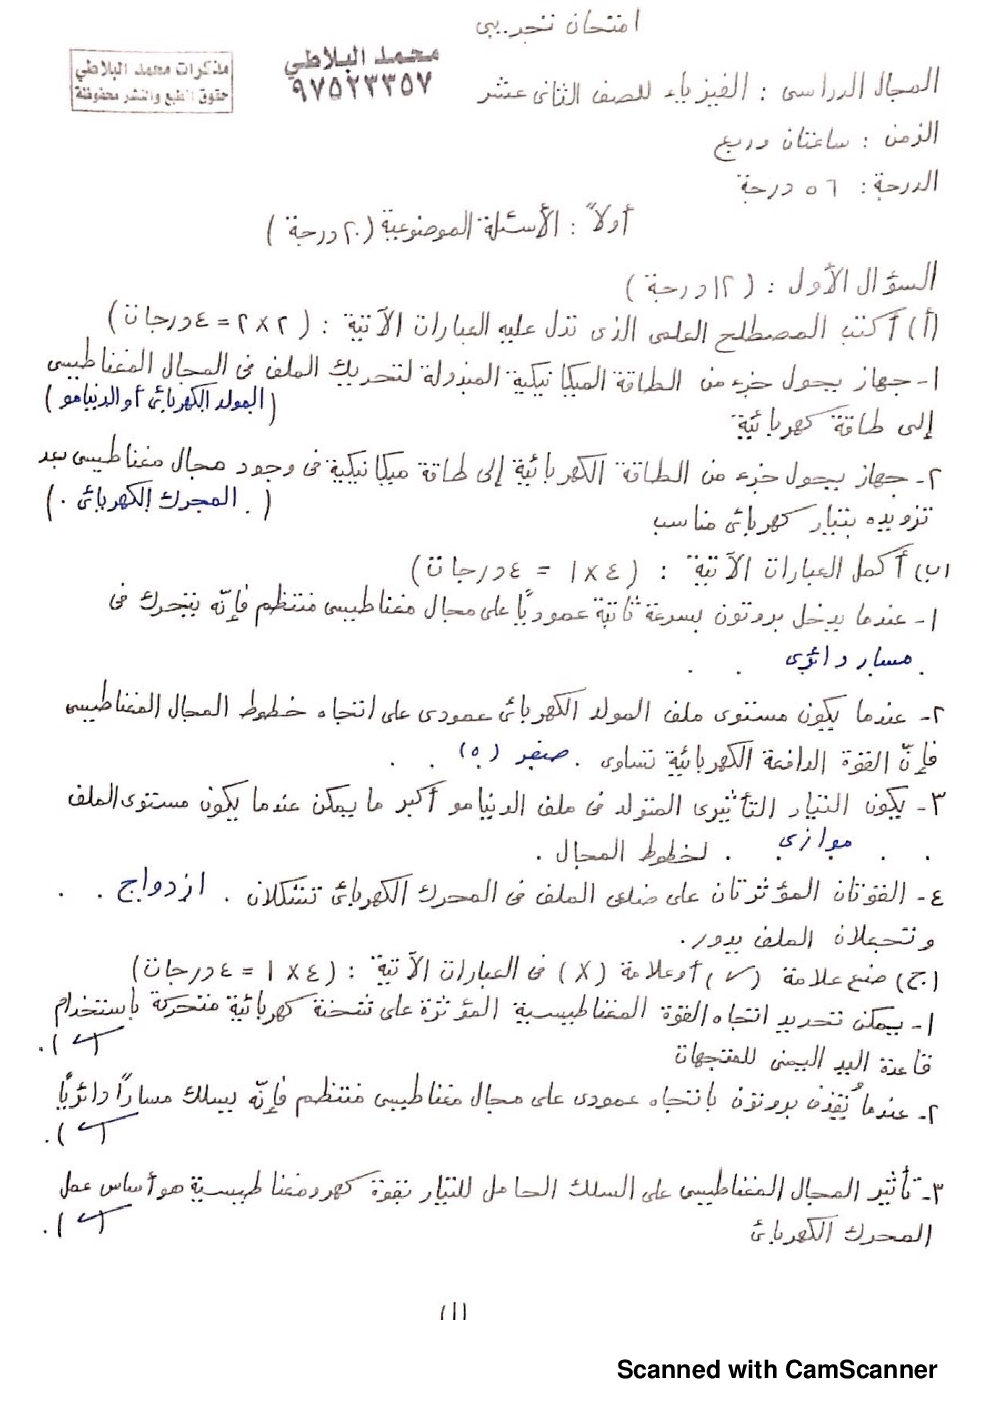 امتحان تجريبى
محمد البلاطي
٩٧٥٢٣٣٥٧
مذكرات محمد البلاطي
حقوق الطبع والنشر محفوظة
المجال الدراسى : الفيزياء للصف الثانى عشر
الزمن : ساعتان وربع
الدرجة : ٥٦ درجة
أولاً : الأسئلة الموضوعية (٢٠ درجة)
السؤال الأول : (١٢ درجة)
(أ) أكتب المصطلح العلمى الذى تدل عليه العبارات الآتية : (٢ × ٢ = ٤ درجات)
١- جهاز يحول جزء من الطاقة الميكانيكية المبذولة لتحريك الملف فى المجال المغناطيسى
إلى طاقة كهربائية (المولد الكهربائى أو الدينامو)
٢- جهاز يحول جزء من الطاقة الكهربائية إلى طاقة ميكانيكية فى وجود مجال مغناطيسى بعد
تزويده بتيار كهربائى مناسب ( . المحرك الكهربائى . )
(ب) أكمل العبارات الآتية : (٤ × ١ = ٤ درجات)
١- عندما يدخل بروتون بسرعة ثابتة عموديًا على مجال مغناطيسى منتظم فإنّه يتحرك فى
. مسار دائرى . .
٢- عندما يكون مستوى ملف المولد الكهربائى عمودى على اتجاه خطوط المجال المغناطيسى
فإنّ القوة الدافعة الكهربائية تساوى . صفر (٥) . .
٣- يكون التيار التأثيرى المتولد فى ملف الدينامو أكبر ما يمكن عندما يكون مستوى الملف
. . موازى . . لخطوط المجال .
٤- القوتان المؤثرتان على ضلعى الملف فى المحرك الكهربائى تشكلان . ازدواج . .
وتجعلان الملف يدور .
(ج) ضع علامة (✓) أو علامة (X) فى العبارات الآتية : (٤ × ١ = ٤ درجات)
١- يمكن تحديد اتجاه القوة المغناطيسية المؤثرة على شحنة كهربائية متحركة باستخدام
قاعدة اليد اليمنى للمتجهات (✓).
٢- عندما يُقذف بروتون باتجاه عمودى على مجال مغناطيسى منتظم فإنّه يسلك مسارًا دائريًا
(✓).
٣- تأثير المجال المغناطيسى على السلك الحامل للتيار بقوة كهرومغناطيسية هو أساس عمل
المحرك الكهربائى (✓).
(١)
Scanned with CamScanner